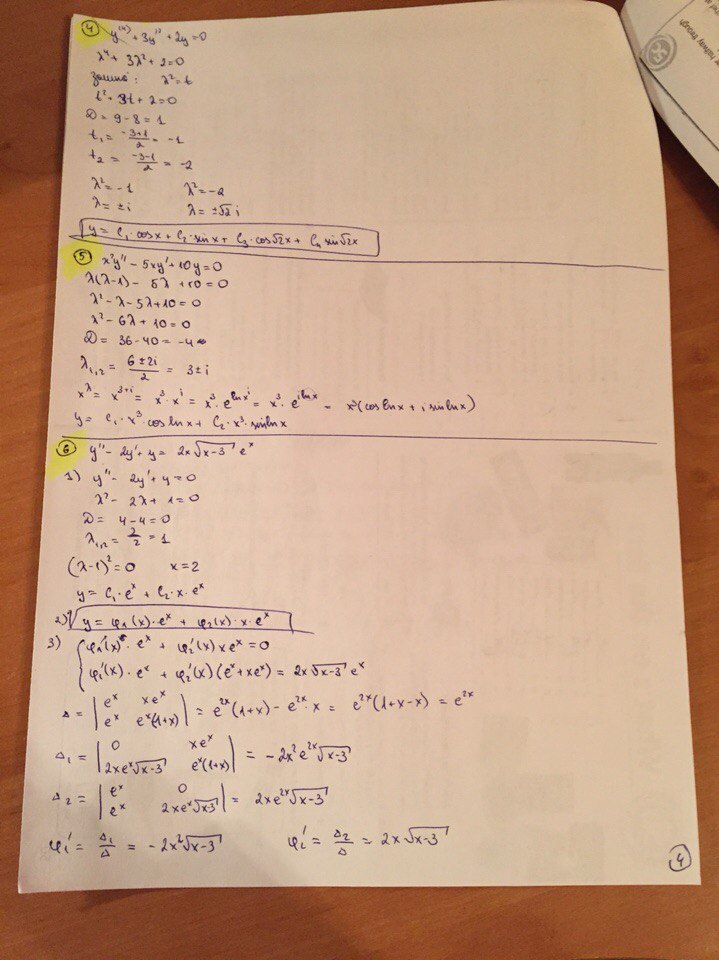 4 y⁽⁴⁾ + 3y'' + 2y = 0
λ⁴ + 3λ² + 2 = 0
замена: λ² = t
t² + 3t + 2 = 0
D = 9 - 8 = 1
t₁ = (-3+1)/2 = -1
t₂ = (-3-1)/2 = -2
λ² = -1 λ² = -2
λ = ±i λ = ±√2 i
y = C₁·cosx + C₂·sinx + C₃·cos√2x + C₄ sin√2x
5 x²y'' - 5xy' + 10y = 0
λ(λ-1) - 5λ + 10 = 0
λ² - λ - 5λ + 10 = 0
λ² - 6λ + 10 = 0
D = 36 - 40 = -4
λ₁,₂ = (6 ± 2i)/2 = 3 ± i
x^λ = x^(3+i) = x³·x^i = x³·e^(ln x^i) = x³·e^(i ln x) = x³(cos lnx + i sin lnx)
y = C₁·x³·cos lnx + C₂·x³·sin lnx
6 y'' - 2y' + y = 2x√(x-3) eˣ
1) y'' - 2y' + y = 0
λ² - 2λ + 1 = 0
D = 4 - 4 = 0
λ₁,₂ = 2/2 = 1
(λ-1)² = 0 x = 2
y = C₁·eˣ + C₂·x·eˣ
2) y = φ₁(x)·eˣ + φ₂(x)·x·eˣ
3) { φ₁'(x)·eˣ + φ₂'(x) x eˣ = 0
φ₁'(x)·eˣ + φ₂'(x)(eˣ + xeˣ) = 2x√(x-3) eˣ
Δ = | eˣ xeˣ ; eˣ eˣ(1+x) | = e²ˣ(1+x) - e²ˣ·x = e²ˣ(1+x-x) = e²ˣ
Δ₁ = | 0 xeˣ ; 2xeˣ√(x-3) eˣ(1+x) | = -2x²e²ˣ√(x-3)
Δ₂ = | eˣ 0 ; eˣ 2xeˣ√(x-3) | = 2xe²ˣ√(x-3)
φ₁' = Δ₁/Δ = -2x²√(x-3) φ₂' = Δ₂/Δ = 2x√(x-3)
4